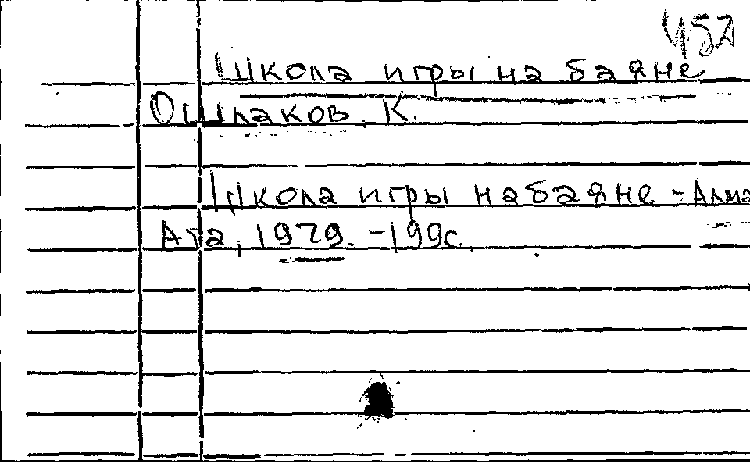 452
Школа игры на баяне
Ошлаков. К.
Школа игры на баяне - Алма
Ата, 1979. - 199с.